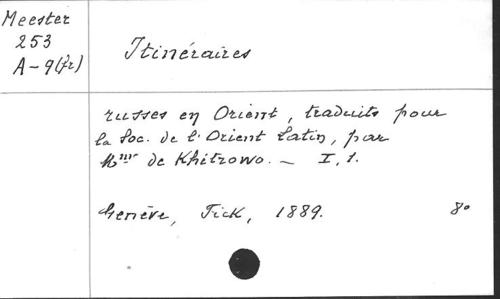 Meester
253
A-9(fr)
Itinéraires
russes en Orient, traduits pour
la Soc. de l'Orient Latin, par
Mme de Khitrowo. — I, 1.
Genève, Fick, 1889. 8°